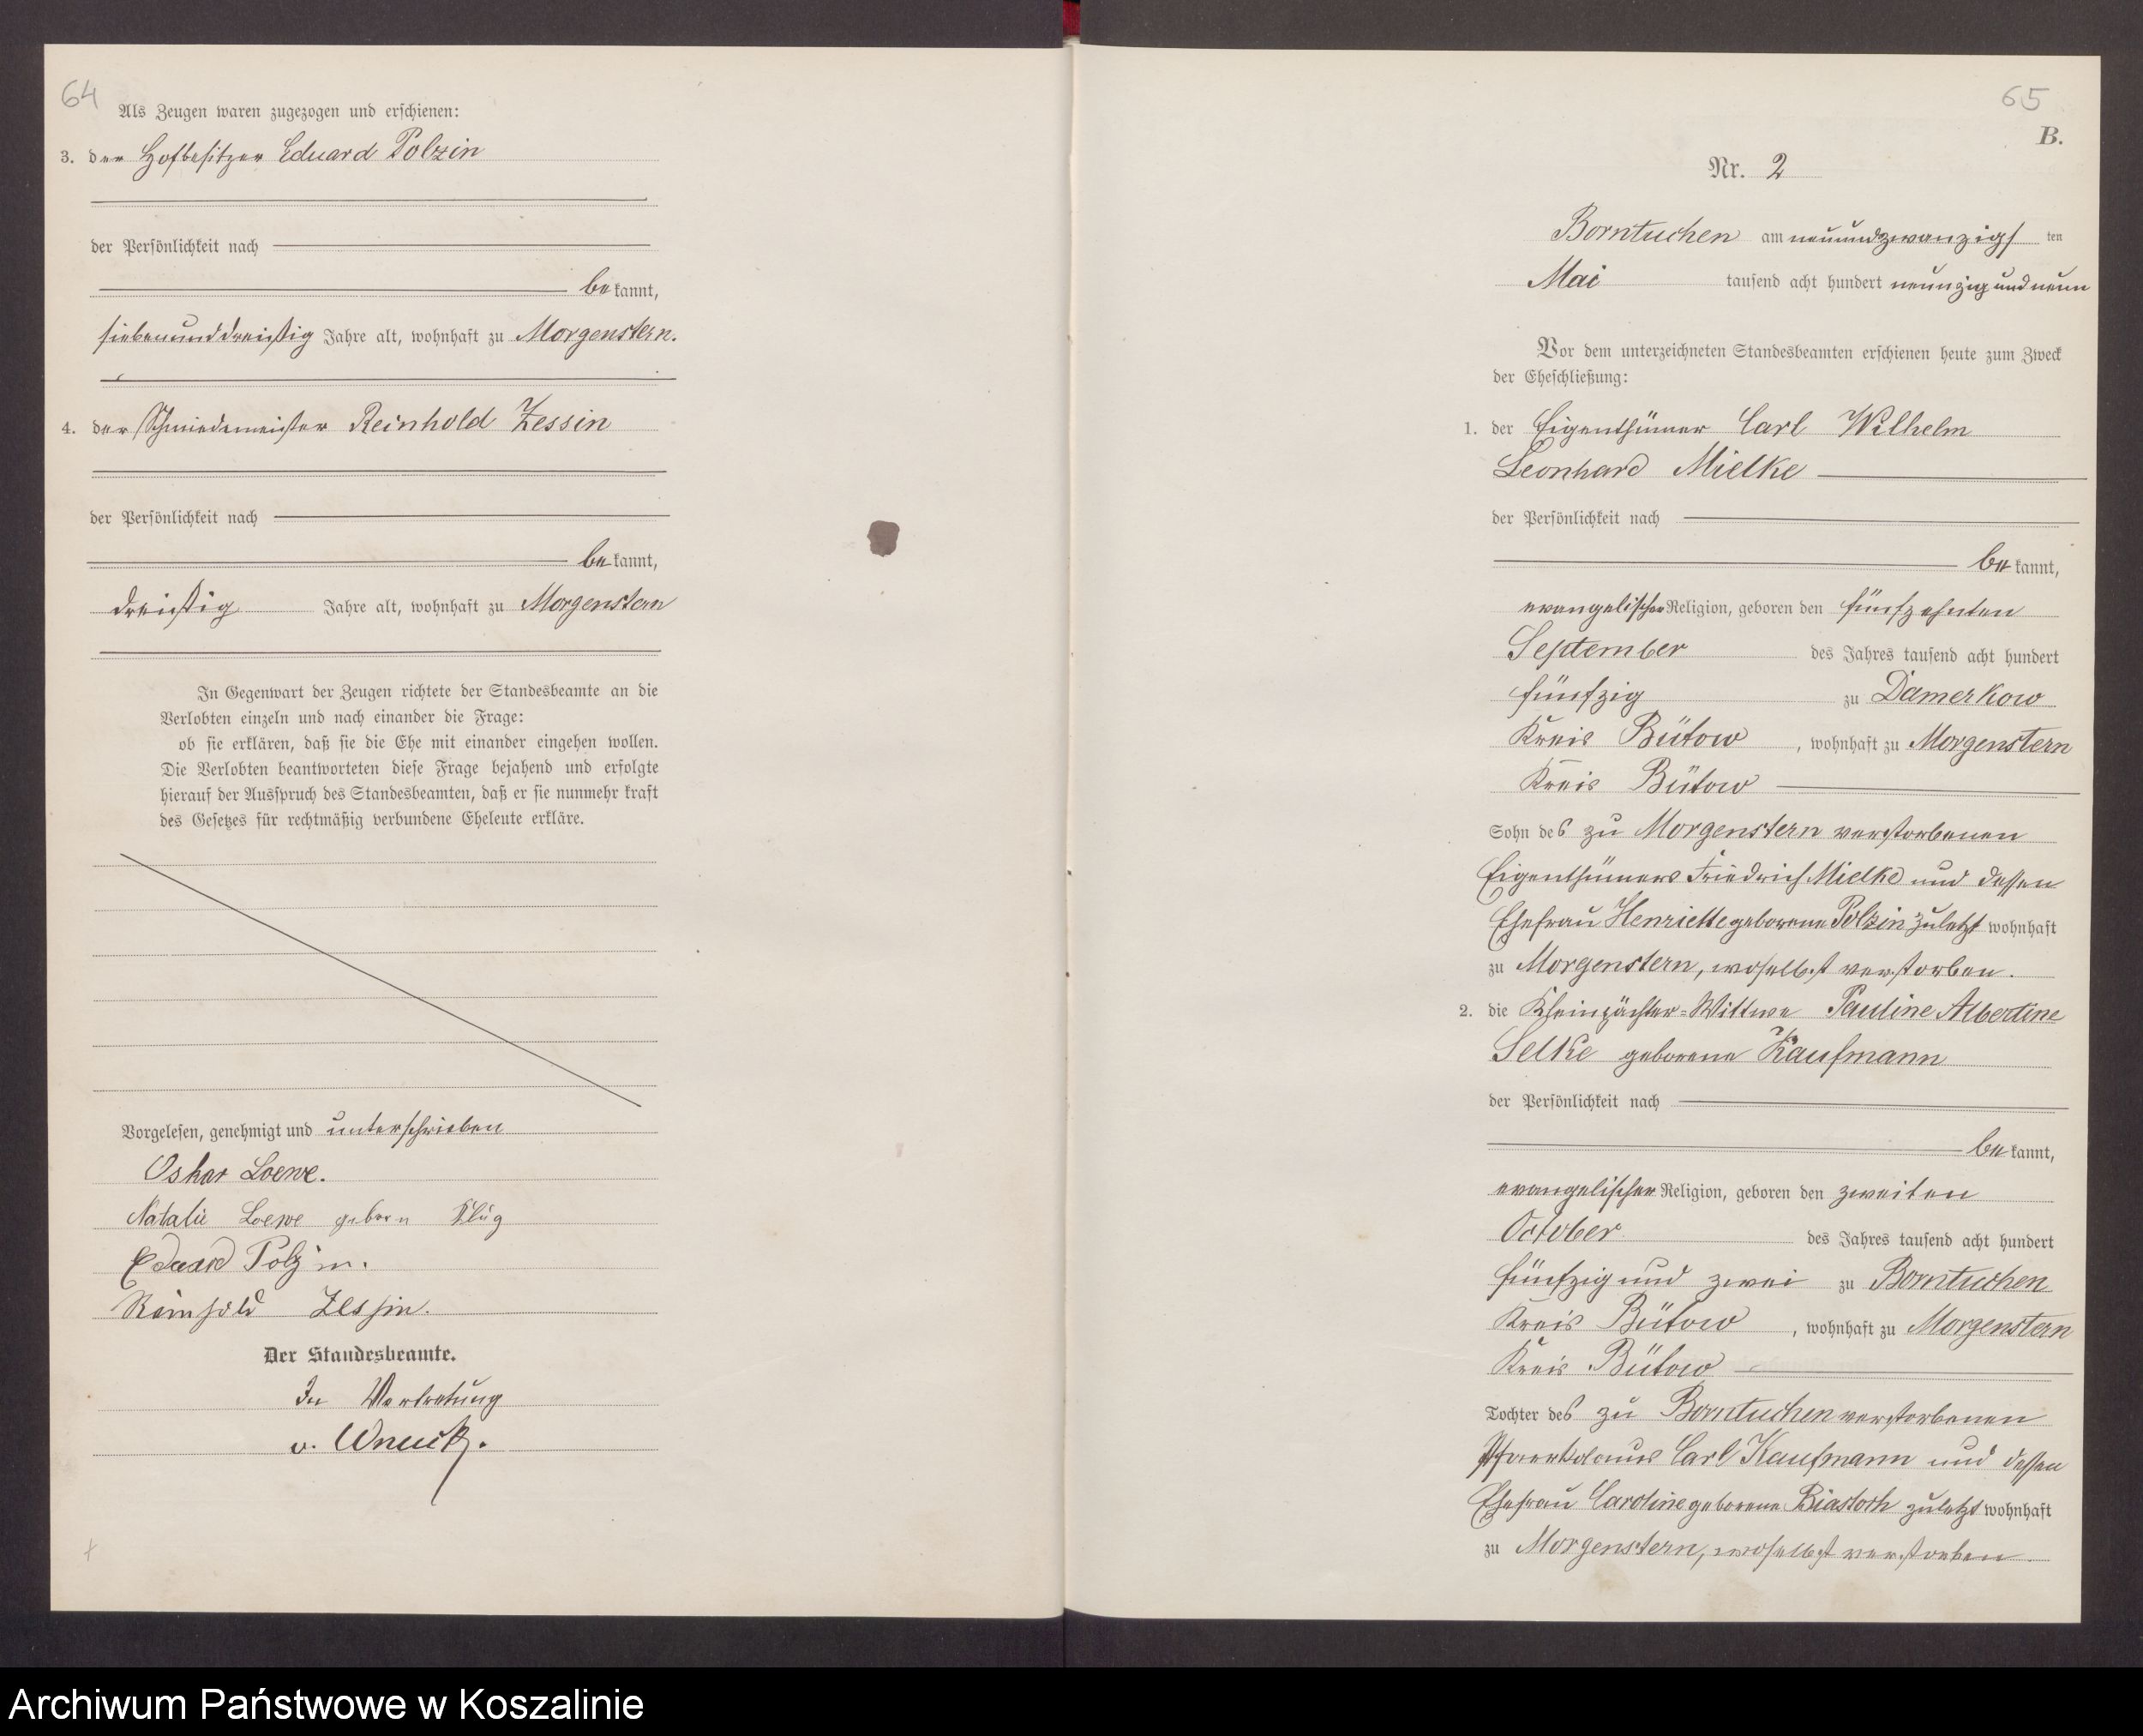 64
Als Zeugen waren zugezogen und erschienen:
3. der Hofbesitzer Eduard Polzin
der Persönlichkeit nach
bekannt,
siebenunddreißig Jahre alt, wohnhaft zu Morgenstern.
4. der Schmiedemeister Reinhold Zessin
der Persönlichkeit nach
bekannt,
dreißig Jahre alt, wohnhaft zu Morgenstern
In Gegenwart der Zeugen richtete der Standesbeamte an die
Verlobten einzeln und nach einander die Frage:
ob sie erklären, daß sie die Ehe mit einander eingehen wollen.
Die Verlobten beantworteten diese Frage bejahend und erfolgte
hierauf der Ausspruch des Standesbeamten, daß er sie nunmehr kraft
des Gesetzes für rechtmäßig verbundene Eheleute erkläre.
Vorgelesen, genehmigt und unterschrieben
Oskar Loewe.
Natalie Loewe geborn Klüg
Eduard Polzin.
Reinhold Zessin.
Der Standesbeamte.
In Vertretung
v. Wnuck.
65
B.
Nr. 2
Borntuchen am neunundzwanzigsten
Mai tausend acht hundert neunzig und neun
Vor dem unterzeichneten Standesbeamten erschienen heute zum Zweck
der Eheschließung:
1. der Eigenthümer Carl Wilhelm
Leonhard Mielke
der Persönlichkeit nach
bekannt,
evangelischer Religion, geboren den fünfzehnten
September des Jahres tausend acht hundert
fünfzig zu Damerkow
Kreis Bütow, wohnhaft zu Morgenstern
Kreis Bütow
Sohn des zu Morgenstern verstorbenen
Eigenthümers Friedrich Mielke und dessen
Ehefrau Henriette geborene Polzin zuletzt wohnhaft
zu Morgenstern, woselbst verstorben.
2. die Kleinpächter=Wittwe Pauline Albertine
Selke geborene Kaufmann
der Persönlichkeit nach
bekannt,
evangelischer Religion, geboren den zweiten
October des Jahres tausend acht hundert
fünfzig und zwei zu Borntuchen
Kreis Bütow, wohnhaft zu Morgenstern
Kreis Bütow
Tochter des zu Borntuchen verstorbenen
Carl Kaufmann und dessen
Ehefrau Caroline geborene Biastoch zuletzt wohnhaft
zu Morgenstern, woselbst verstorben
Archiwum Państwowe w Koszalinie